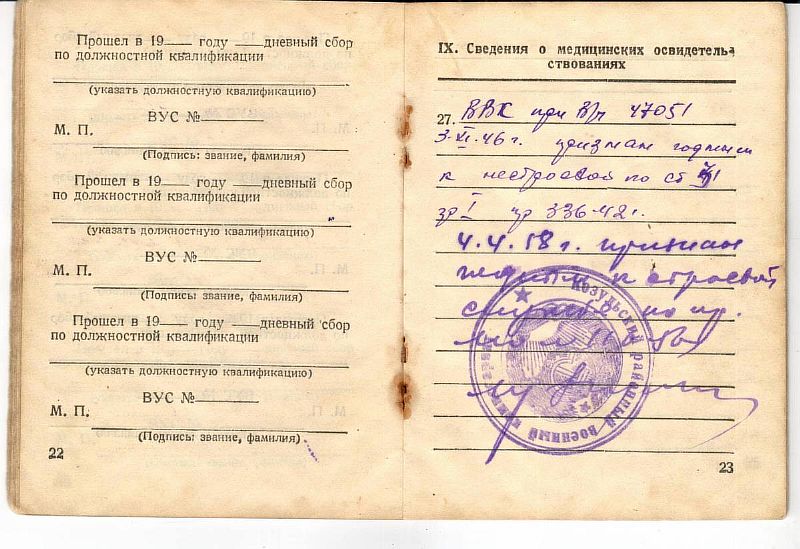 Прошел в 19 году дневный сбор
по должностной квалификации
(указать должностную квалификацию)
ВУС №
М. П.
(Подпись: звание, фамилия)
Прошел в 19 году дневный сбор
по должностной квалификации
(указать должностную квалификацию)
ВУС №
М. П.
(Подпись: звание, фамилия)
Прошел в 19 году дневный сбор
по должностной квалификации
(указать должностную квалификацию)
ВУС №
М. П.
(Подпись: звание, фамилия)
22
IX. Сведения о медицинских освидетель-
ствованиях
27. ВВК при В/ч 47051
3.XI.46 г. признан годным
к нестроевой по ст
гр I пр 336-42 г.
4.4.58 г. признан
годным к строевой
службе по пр.
Козульский районный военный
23